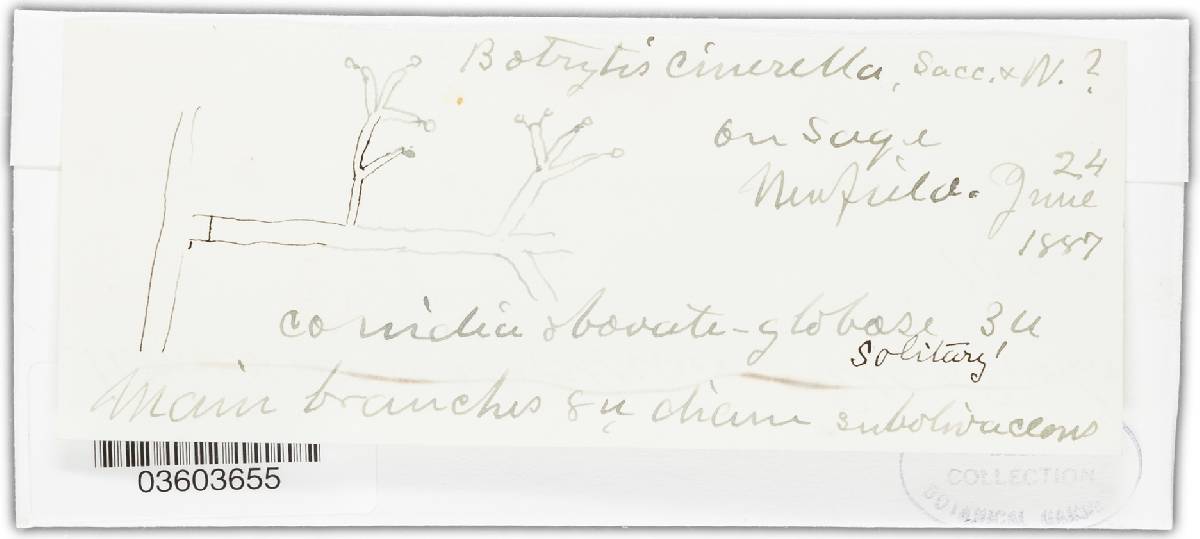 Botrytis cinerella, Sacc. & W. ?
on Sage
Newfield. June 24
1887
conidia obovate-globose 3u
solitary!
Main branches 8u diam subolivaceous
03603655
COLLECTION
BOTANICAL GARDE